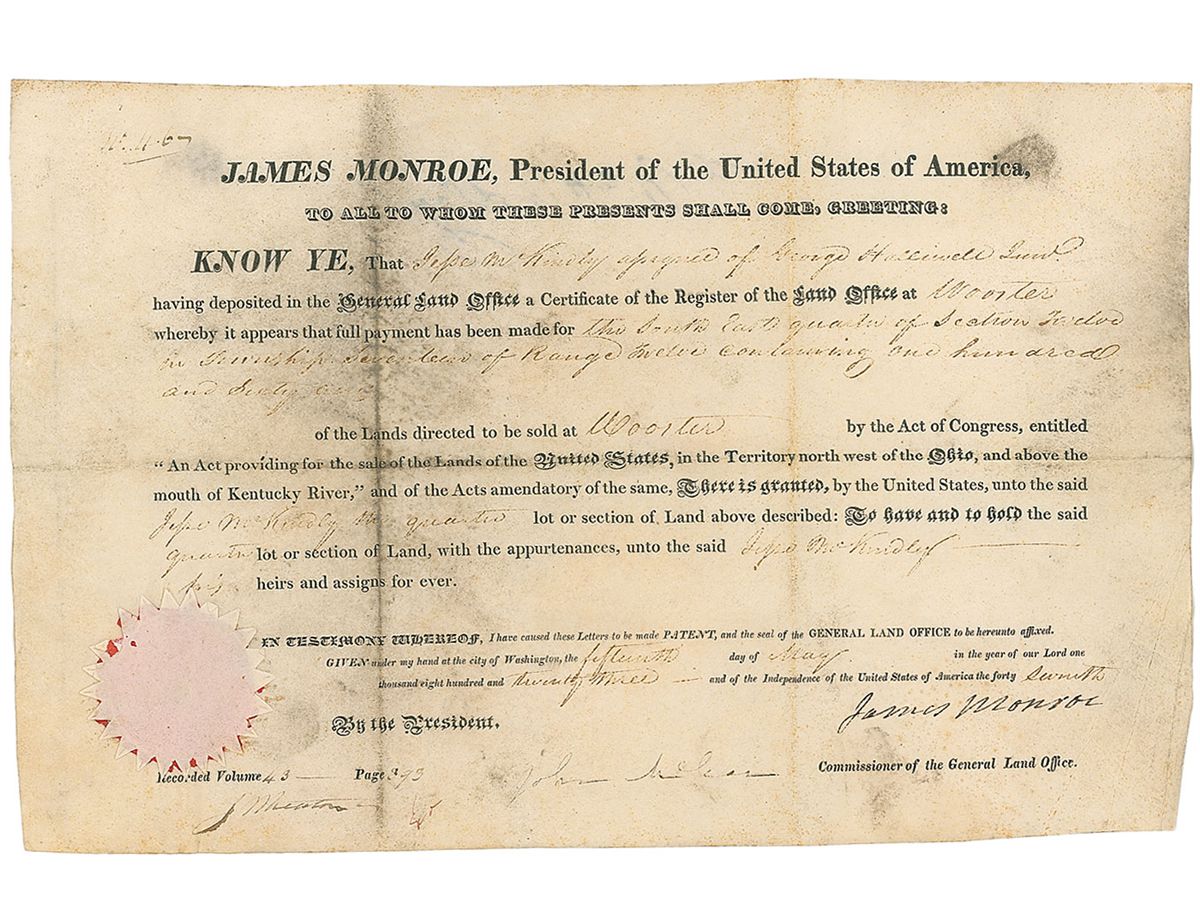 JAMES MONROE, President of the United States of America,
TO ALL TO WHOM THESE PRESENTS SHALL COME, GREETING:
KNOW YE, That Jesse McKindly assignee of George Hollinwell Junr.
having deposited in the General Land Office a Certificate of the Register of the Land Office at Wooster
whereby it appears that full payment has been made for the South East quarter of Section Twelve
in Township Seventeen of Range Twelve containing one hundred
and Sixty
of the Lands directed to be sold at Wooster by the Act of Congress, entitled
"An Act providing for the sale of the Lands of the United States, in the Territory north west of the Ohio, and above the
mouth of Kentucky River," and of the Acts amendatory of the same, There is granted, by the United States, unto the said
Jesse McKindly the quarter lot or section of Land above described: To have and to hold the said
quarter lot or section of Land, with the appurtenances, unto the said Jesse McKindly
his heirs and assigns for ever.
IN TESTIMONY WHEREOF, I have caused these Letters to be made PATENT, and the seal of the GENERAL LAND OFFICE to be hereunto affixed.
GIVEN under my hand at the city of Washington, the fifteenth day of May in the year of our Lord one
thousand eight hundred and twenty three and of the Independence of the United States of America the forty Seventh
James Monroe
By the President.
John McLean Commissioner of the General Land Office.
Recorded Volume 43 Page 393